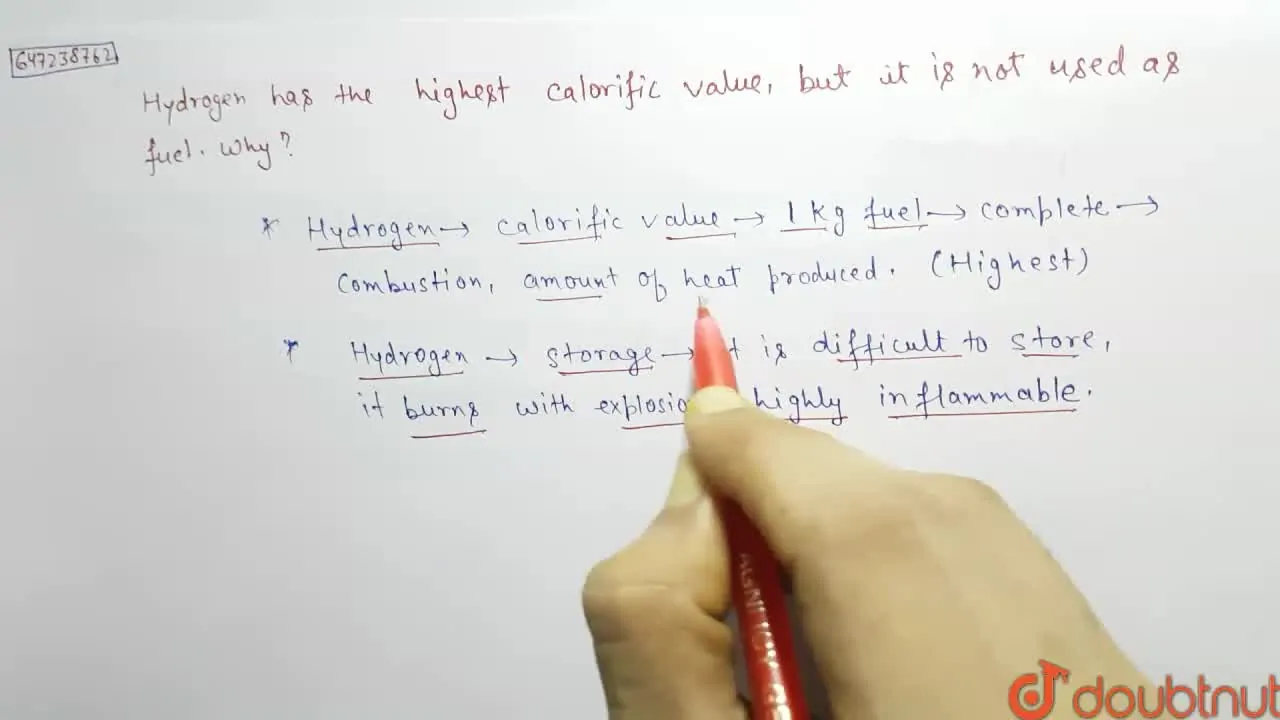 647238762
Hydrogen has the highest calorific value, but it is not used as
fuel. Why?
* Hydrogen → calorific value → 1 kg fuel → complete →
combustion, amount of heat produced. (Highest)
* Hydrogen → storage → is difficult to store,
it burns with highly inflammable.
AGNI
doubtnut